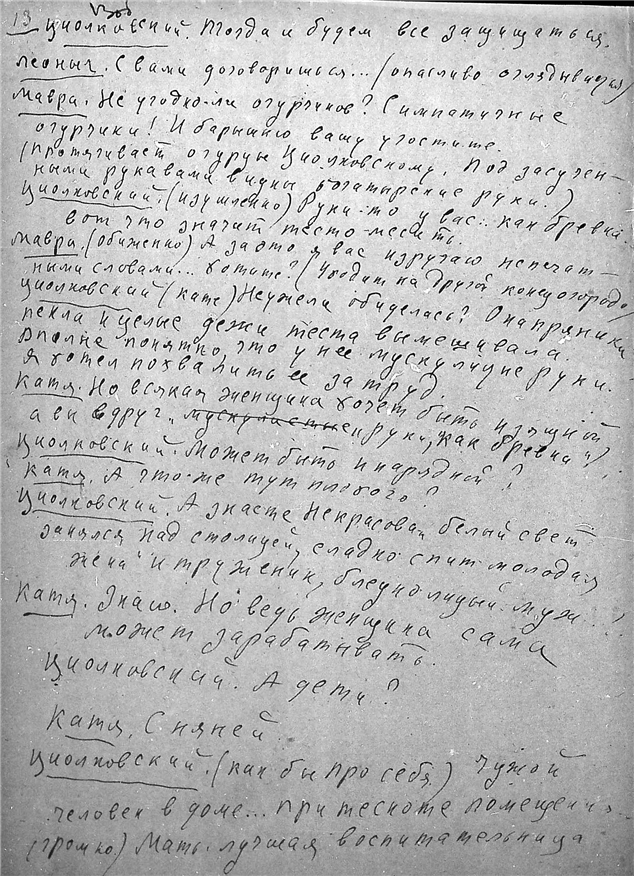 13
Циолковский. Тогда и будем все защищаться.
Леоныч. С вами договоришься... (опасливо оглядывается)
Мавра. Не угодно-ли огурчиков? Симпатичные
огурчики! И барышню вашу угостите.
(протягивает огурцы Циолковскому. Под засучен-
ными рукавами видны богатырские руки.)
Циолковский. (изумленно) Руки-то у вас.. как бревна.
вот что значит тесто-месить.
Мавра. (обиженно) А за это я вас изругаю непечат-
ными словами... хотите? (уходит на другой конец огорода)
Циолковский (Кате) Неужели обиделась? Она пряники
пекла и целые дежи теста вымешивала.
Вполне понятно, что у нее мускулистые руки.
Я хотел похвалить ее за труд.
Катя. Но всякая женщина хочет быть изящной,
а вы вдруг „мускулистые руки, как бревна"!
Циолковский. Может быть и нарядной?
Катя. А что-же тут плохого?
Циолковский. А знаете Некрасова „белый свет
занялся над столицей, сладко спит молодая
жена" и труженик, бледнолицый муж...!
Катя. Знаю. Но ведь женщина сама
может зарабатывать.
Циолковский. А дети?
Катя. С няней
Циолковский. (как бы про себя.) Чужой
человек в доме... при тесноте помещения...
(громко.) Мать-лучшая воспитательница